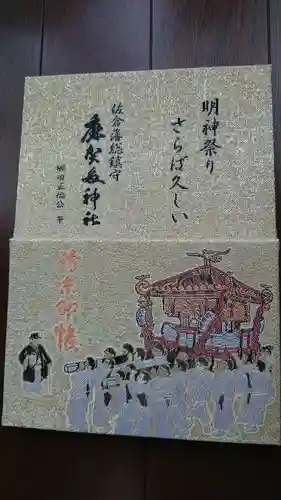 明神祭り
さらば久しい
佐倉藩総鎮守
麻賀多神社
堀田正倫公 筆
特殊御朱印帳